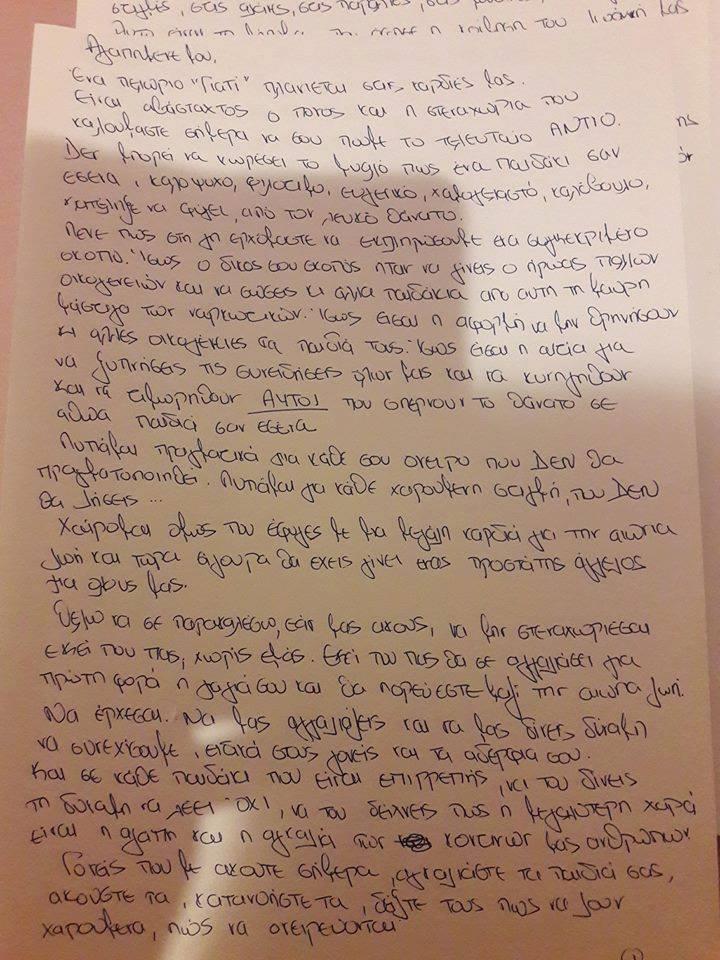 στιγμές, στις αγάπες, στις
Αγαπημένε μου,
Ένα τεράστιο "Γιατί" πλανιέται στις καρδιές μας.
Είναι αβάσταχτος ο πόνος και η στεναχώρια που
καλούμαστε σήμερα να σου πούμε το τελευταίο ΑΝΤΙΟ.
Δεν μπορεί να χωρέσει το μυαλό πως ένα παιδάκι σαν
εσένα, καλόψυχο, φιλότιμο, ευγενικό, χαμογελαστό, καλόβουλο,
κατέληξε να φύγει, από τον λευκό θάνατο.
Λένε πως στη γη ερχόμαστε να εκπληρώσουμε ένα συγκεκριμένο
σκοπό. Ίσως ο δικός σου σκοπός ήταν να γίνεις ο ήρωας πολλών
οικογενειών και να σώσεις κι άλλα παιδάκια από αυτή τη μαύρη
μάστιγα των ναρκωτικών. Ίσως είσαι η αφορμή να μην θρηνήσουν
κι άλλες οικογένειες τα παιδιά τους. Ίσως είσαι η αιτία για
να ξυπνήσεις τις συνειδήσεις όλων μας και να κυνηγηθούν
και να τιμωρηθούν ΑΥΤΟΙ που σπέρνουν το θάνατο σε
αθώα παιδιά σαν εσένα
Λυπάμαι πραγματικά για κάθε σου όνειρο που ΔΕΝ θα
πραγματοποιηθεί. Λυπάμαι για κάθε χαρούμενη στιγμή, που ΔΕΝ
θα ζήσεις ...
Χαίρομαι όμως που έφυγες με μια μεγάλη καρδιά για την αιώνια
ζωή και τώρα σίγουρα θα έχεις γίνει ένας προστάτης άγγελος
για όλους μας.
Θέλω να σε παρακαλέσω, εάν μας ακούς, να μην στεναχωριέσαι
εκεί που πας, χωρίς εμάς. Εκεί που πας θα σε αγκαλιάσει για
πρώτη φορά η γιαγιά σου και θα πορεύεστε μαζί την αιώνια ζωή.
Να έρχεσαι. Να μας αγκαλιάζεις και να μας δίνεις δύναμη
να συνεχίσουμε, ειδικά στους γονείς και τα αδέρφια σου.
Και σε κάθε παιδάκι που είναι επιρρεπής, να του δίνεις
τη δύναμη να λέει ΌΧΙ, να του δείχνεις πως η μεγαλύτερη χαρά
είναι η αγάπη και η αγκαλιά των κοντινών μας ανθρώπων
Γονείς που με ακούτε σήμερα, αγκαλιάστε τα παιδιά σας,
ακούστε τα, κατανοήστε τα, δείξτε τους πως να ζουν
χαρούμενα, πώς να ονειρεύονται